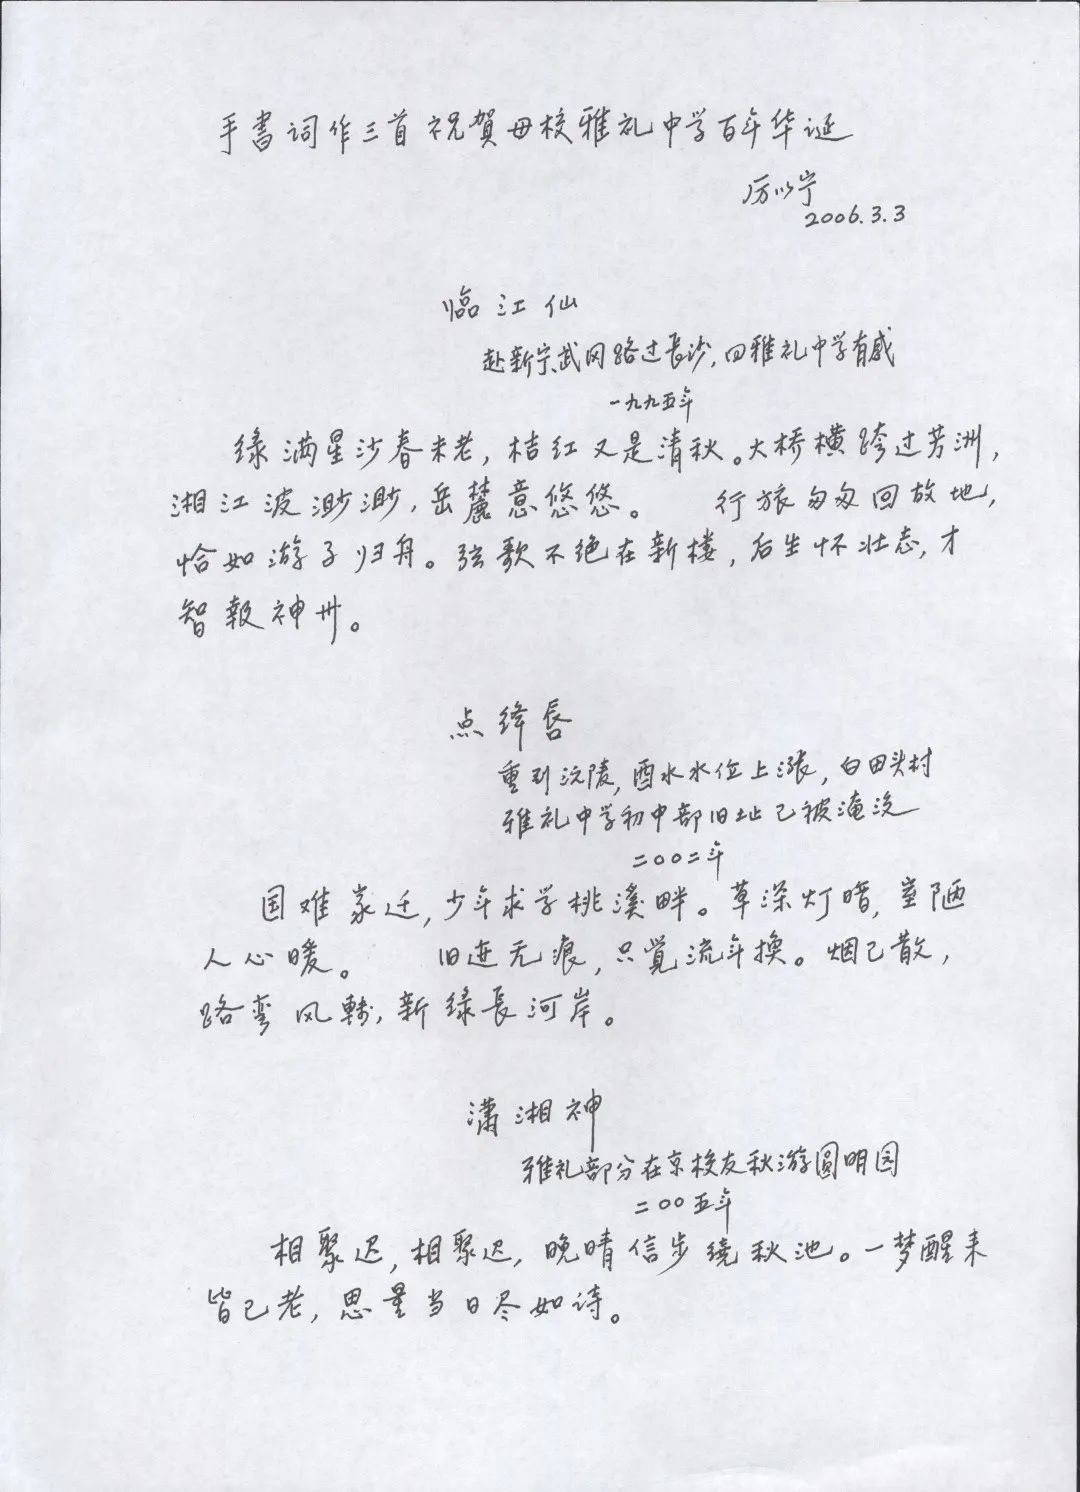 手書词作三首祝賀母校雅礼中学百年华诞
厉以宁
2006.3.3
临江仙
赴新宁、武冈路过長沙，回雅礼中学有感
一九九五年
绿满星沙春未老，桔红又是清秋。大桥横跨过芳洲，
湘江波渺渺，岳麓意悠悠。 行旅匆匆回故地，
恰如游子归舟。弦歌不绝在新楼，后生怀壮志，才
智報神州。
点绛唇
重到沅陵，酉水水位上漲，白田头村
雅礼中学初中部旧址已被淹没
二〇〇二年
国难家迁，少年求学桃溪畔。草深灯暗，室陋
人心暖。 旧迹无痕，只覺流年換。烟已散，
路弯风轉，新绿長河岸。
潇湘神
雅礼部分在京校友秋游圆明园
二〇〇五年
相聚迟，相聚迟，晚晴信步绕秋池。一梦醒来
皆已老，思量当日尽如诗。